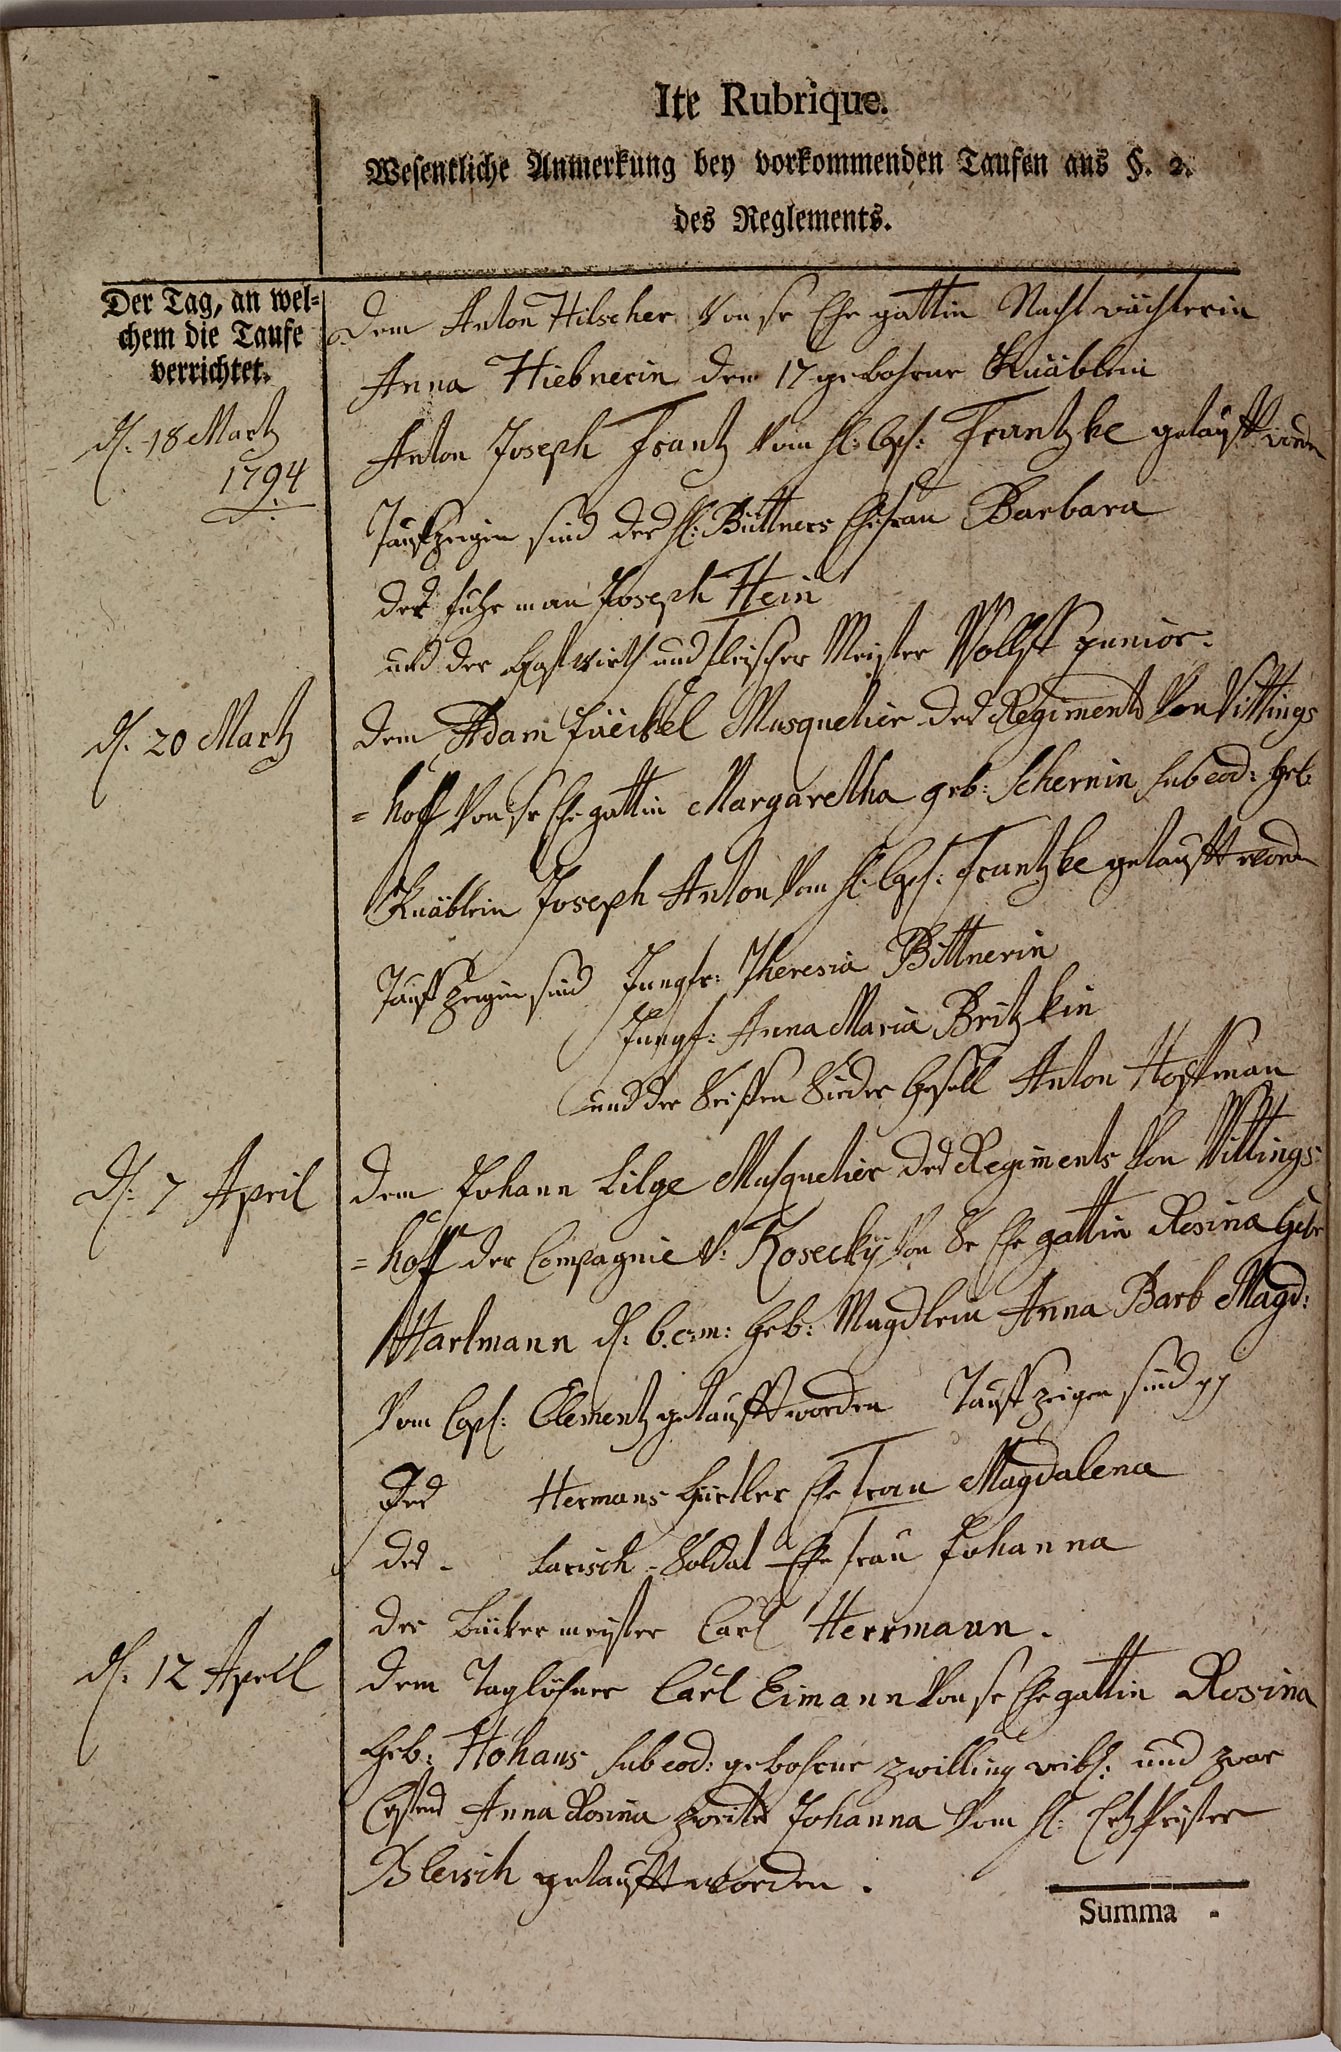 Ite Rubrique.
Wesentliche Anmerkung bey vorkommenden Taufen aus §. 2.
des Reglements.
Der Tag, an wel-
chem die Taufe
verrichtet.
d. 18 Martz
1794
Dem Anton Hilscher von sr Ehe gattin Nacht wächterin
Anna Hiebnerin den 17 gebohrne Knäblein
Anton Joseph Frantz vom H: Cpl: Frantzke getauft worden
Taufzeugen sind des H: Büttners Ehefrau Barbara
der fuhr man Joseph Hein
und der Gastwirth und fleischer Meister Vollst junior.
d. 20 Martz
dem Adam Jäeckel Musquetier des Regiments von Vittings
= hoff von sr Ehe gattin Margaretha geb: Schernin sub eod: geb
Knäblein Joseph Anton vom H: Cpl: Frantzke getaufft worden
Tauf zeugen sind Jungfr: Theresia Bittnerin
Jungf: Anna Maria Britzkin
und der Seiffen Sieder Gesell Anton Hoffman
d: 7 April
dem Johann Lilge Musquetier des Regiments von Vittings
= hoff der Compagnie v: Kosecky von Sr Ehe gattin Rosina Geb
Hartmann d: 6. c: m: geb: Magdlein Anna Barb Magd:
vom Cpl: Clementz getaufft worden Tauf zeigen sind
Des Hermans Gürtler Ehe frau Magdalena
des - Larisch - Soldat Ehe frau Johanna
der Bäcker meister Carl Herrmann.
d: 12 April
dem Taglöhner Carl Eimann von sr Ehe gattin Rosina
Geb: Hohaus sub eod: gebohrne zwilling weibl: und zwar
Erstens Anna Rosina zweitens Johanna vom H: Ertz Priester
Blersch getaufft worden.
Summa -